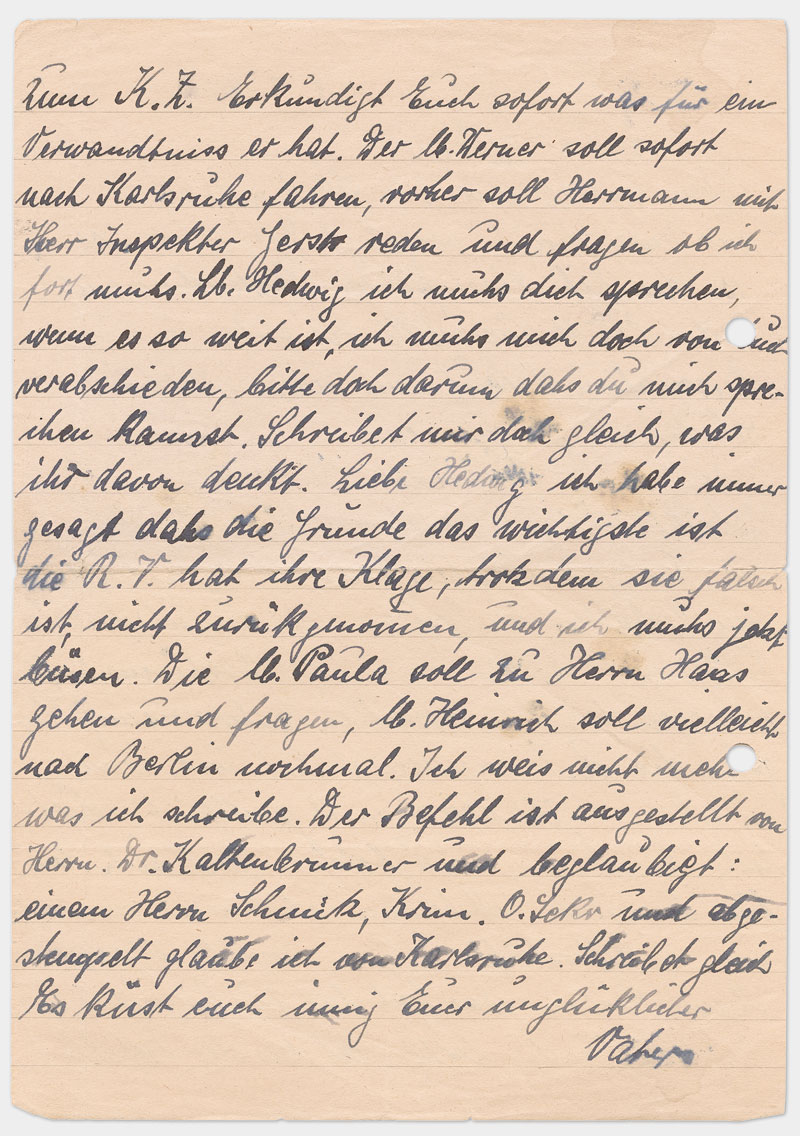 Zum K. Z. Erkundigt Euch sofort was für ein
Verwandtniss er hat. Der M. Werner soll sofort
nach Karlsruhe fahren, vorher soll Herrmann mit
Herr Inspekter Gerst reden und fragen ob ich
fort muhs. Lb. Hedwig ich muhs dich sprechen,
wenn es so weit ist, ich muhs mich doch von Euch
verabschieden, bitte doch darum dahs du mich spre-
chen kannst. Schreibet mir doch gleich, was
ihr davon denkt. Liebe Hedwig ich habe immer
gesagt dahs die Gründe das wichtigste ist
die R. V. hat ihre Klage, trotzdem sie falsch
ist, nicht zurükgenomen, und ich muhs jetzt
büsen. Die M. Paula soll zu Herrn Haas
gehen und fragen, M. Heinrich soll vielleicht
nach Berlin nochmal. Ich weis nicht mehr
was ich schreibe. Der Befehl ist ausgestellt von
Herrn. Dr. Kaltenbrunner und beglaubigt:
einem Herrn Schmik, Krim. O. Sekr und abge-
stempelt glaube ich von Karlsruhe. Schreibet gleich
Es küst euch innig Euer unglüklicher
Vater